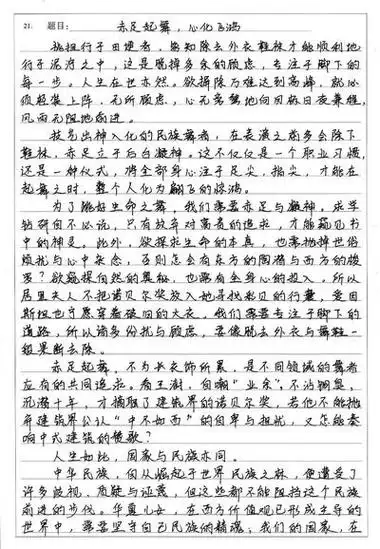 21. 题目：赤足起舞，心化飞鸿
挑担行于田埂者，皆知除去外衣鞋袜才能顺利地
行于泥泞之中，这是脱掉多余的顾虑，专注于脚下的
每一步。人生在世亦然。欲排除万难达到高峰，就必
须轻装上阵，无所顾虑，心无旁骛地向目标日夜兼程，
风雨无阻地前进。
技艺出神入化的民族舞者，在表演之前多会除下
鞋袜，赤足立于后台凝神。这不仅仅是一个职业习惯，
还是一种仪式，将全部身心注于足尖，指尖，才能在
起舞之时，整个人化为翩飞的惊鸿。
为了跳好生命之舞，我们需要赤足与凝神。求学
钻研自不必说，只有放弃对富贵的追求，才能窥见书
中的神灵。此外，欲探求生命的本真，也需抛掉世俗
烦扰与心中杂念，否则怎会有东方的陶潜与西方的梭
罗？欲窥探自然的奥秘，也需有全身心的投入，所以
居里夫人不把诺贝尔奖放入她寻找彩贝的行囊，爱因
斯坦也宁愿穿着破旧的大衣。我们需要专注于脚下的
道路，所以诸多纷扰与顾虑，要像脱去外衣与舞鞋一
般果断去除。
赤足起舞，不为长衣饰所累，是不同领域的舞者
应有的共同追求。看王澍，自嘲“业余”，不沾铜臭，
沉潜十年，才摘取了建筑界的诺贝尔奖，若他不能抛
弃建筑界公认“中不如西”的自卑与担忧，又怎能奏
响中式建筑的赞歌？
人生如此，国家与民族亦同。
中华民族，自从崛起于世界民族之林，便遭受了
许多歧视、质疑与诬蔑，但这些都不能阻挡这个民族
前进的步伐。华夏儿女，在西方价值观已形成主导的
世界中，需要坚守自己民族的精魂，我们的国家，在